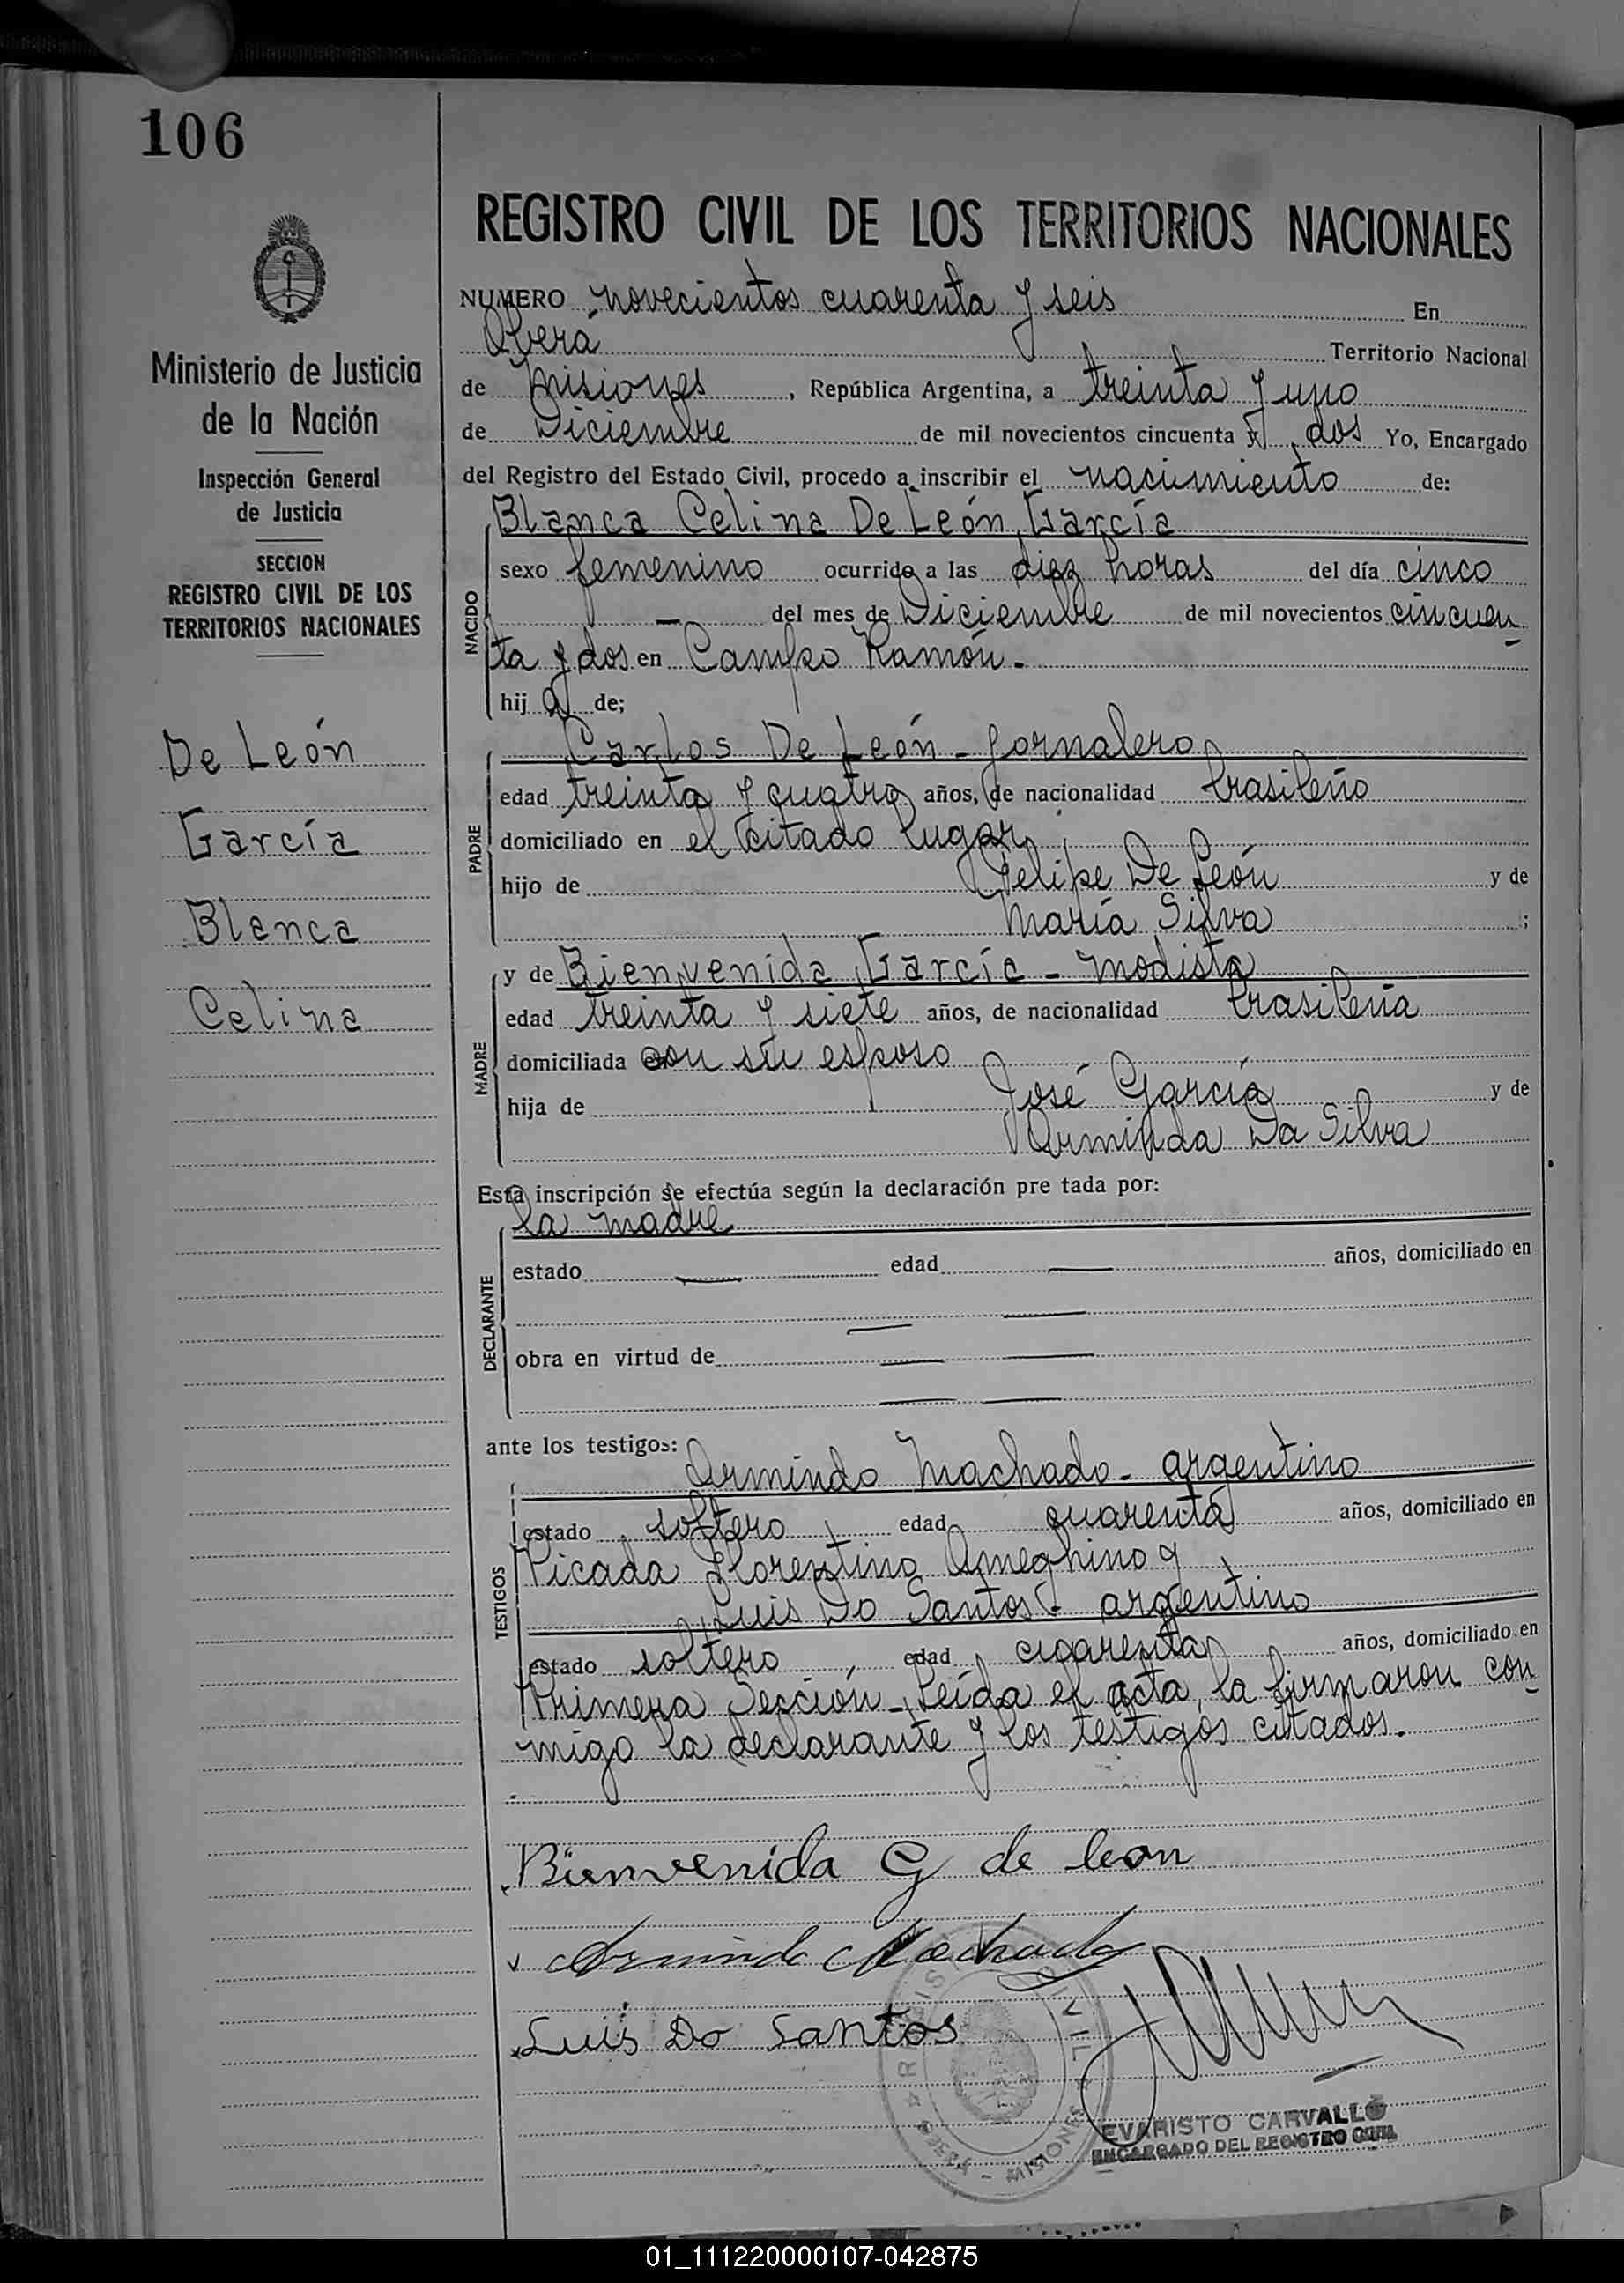 106
Ministerio de Justicia
de la Nación
Inspección General
de Justicia
SECCION
REGISTRO CIVIL DE LOS
TERRITORIOS NACIONALES
De León
García
Blanca
Celina
REGISTRO CIVIL DE LOS TERRITORIOS NACIONALES
NUMERO novecientos cuarenta y seis En
Oberá Territorio Nacional
de Misiones, República Argentina, a treinta y uno
de Diciembre de mil novecientos cincuenta y dos Yo, Encargado
del Registro del Estado Civil, procedo a inscribir el nacimiento de:
NACIDO
Blanca Celina De León García
sexo femenino ocurrido a las diez horas del día cinco
— del mes de Diciembre de mil novecientos cincuen
ta y dos en Campo Ramón.
hij a de;
PADRE
Carlos De León - Jornalero
edad treinta y cuatro años, de nacionalidad brasileño
domiciliado en el citado lugar
hijo de Felipe De León y de
María Silva ;
MADRE
y de Bienvenida García - modista
edad treinta y siete años, de nacionalidad brasileña
domiciliada con su esposo
hija de José García y de
Orminda Da Silva
Esta inscripción se efectúa según la declaración pre tada por:
DECLARANTE
la madre
estado — edad — años, domiciliado en
— —
obra en virtud de — —
— —
ante los testigos:
TESTIGOS
Armindo Machado - argentino
estado soltero edad cuarenta años, domiciliado en
Picada Florentino Ameghino y
Luis Do Santos - argentino
estado soltero, edad cuarenta años, domiciliado en
Primera Sección - Leída el acta, la firmaron con
migo la declarante y los testigos citados.
Bienvenida G de leon
Armindo Machado
Luis Do Santos
REGISTRO CIVIL
OBERA - MISIONES
EVARISTO CARVALLO
ENCARGADO DEL REGISTRO CIVIL
01_111220000107-042875